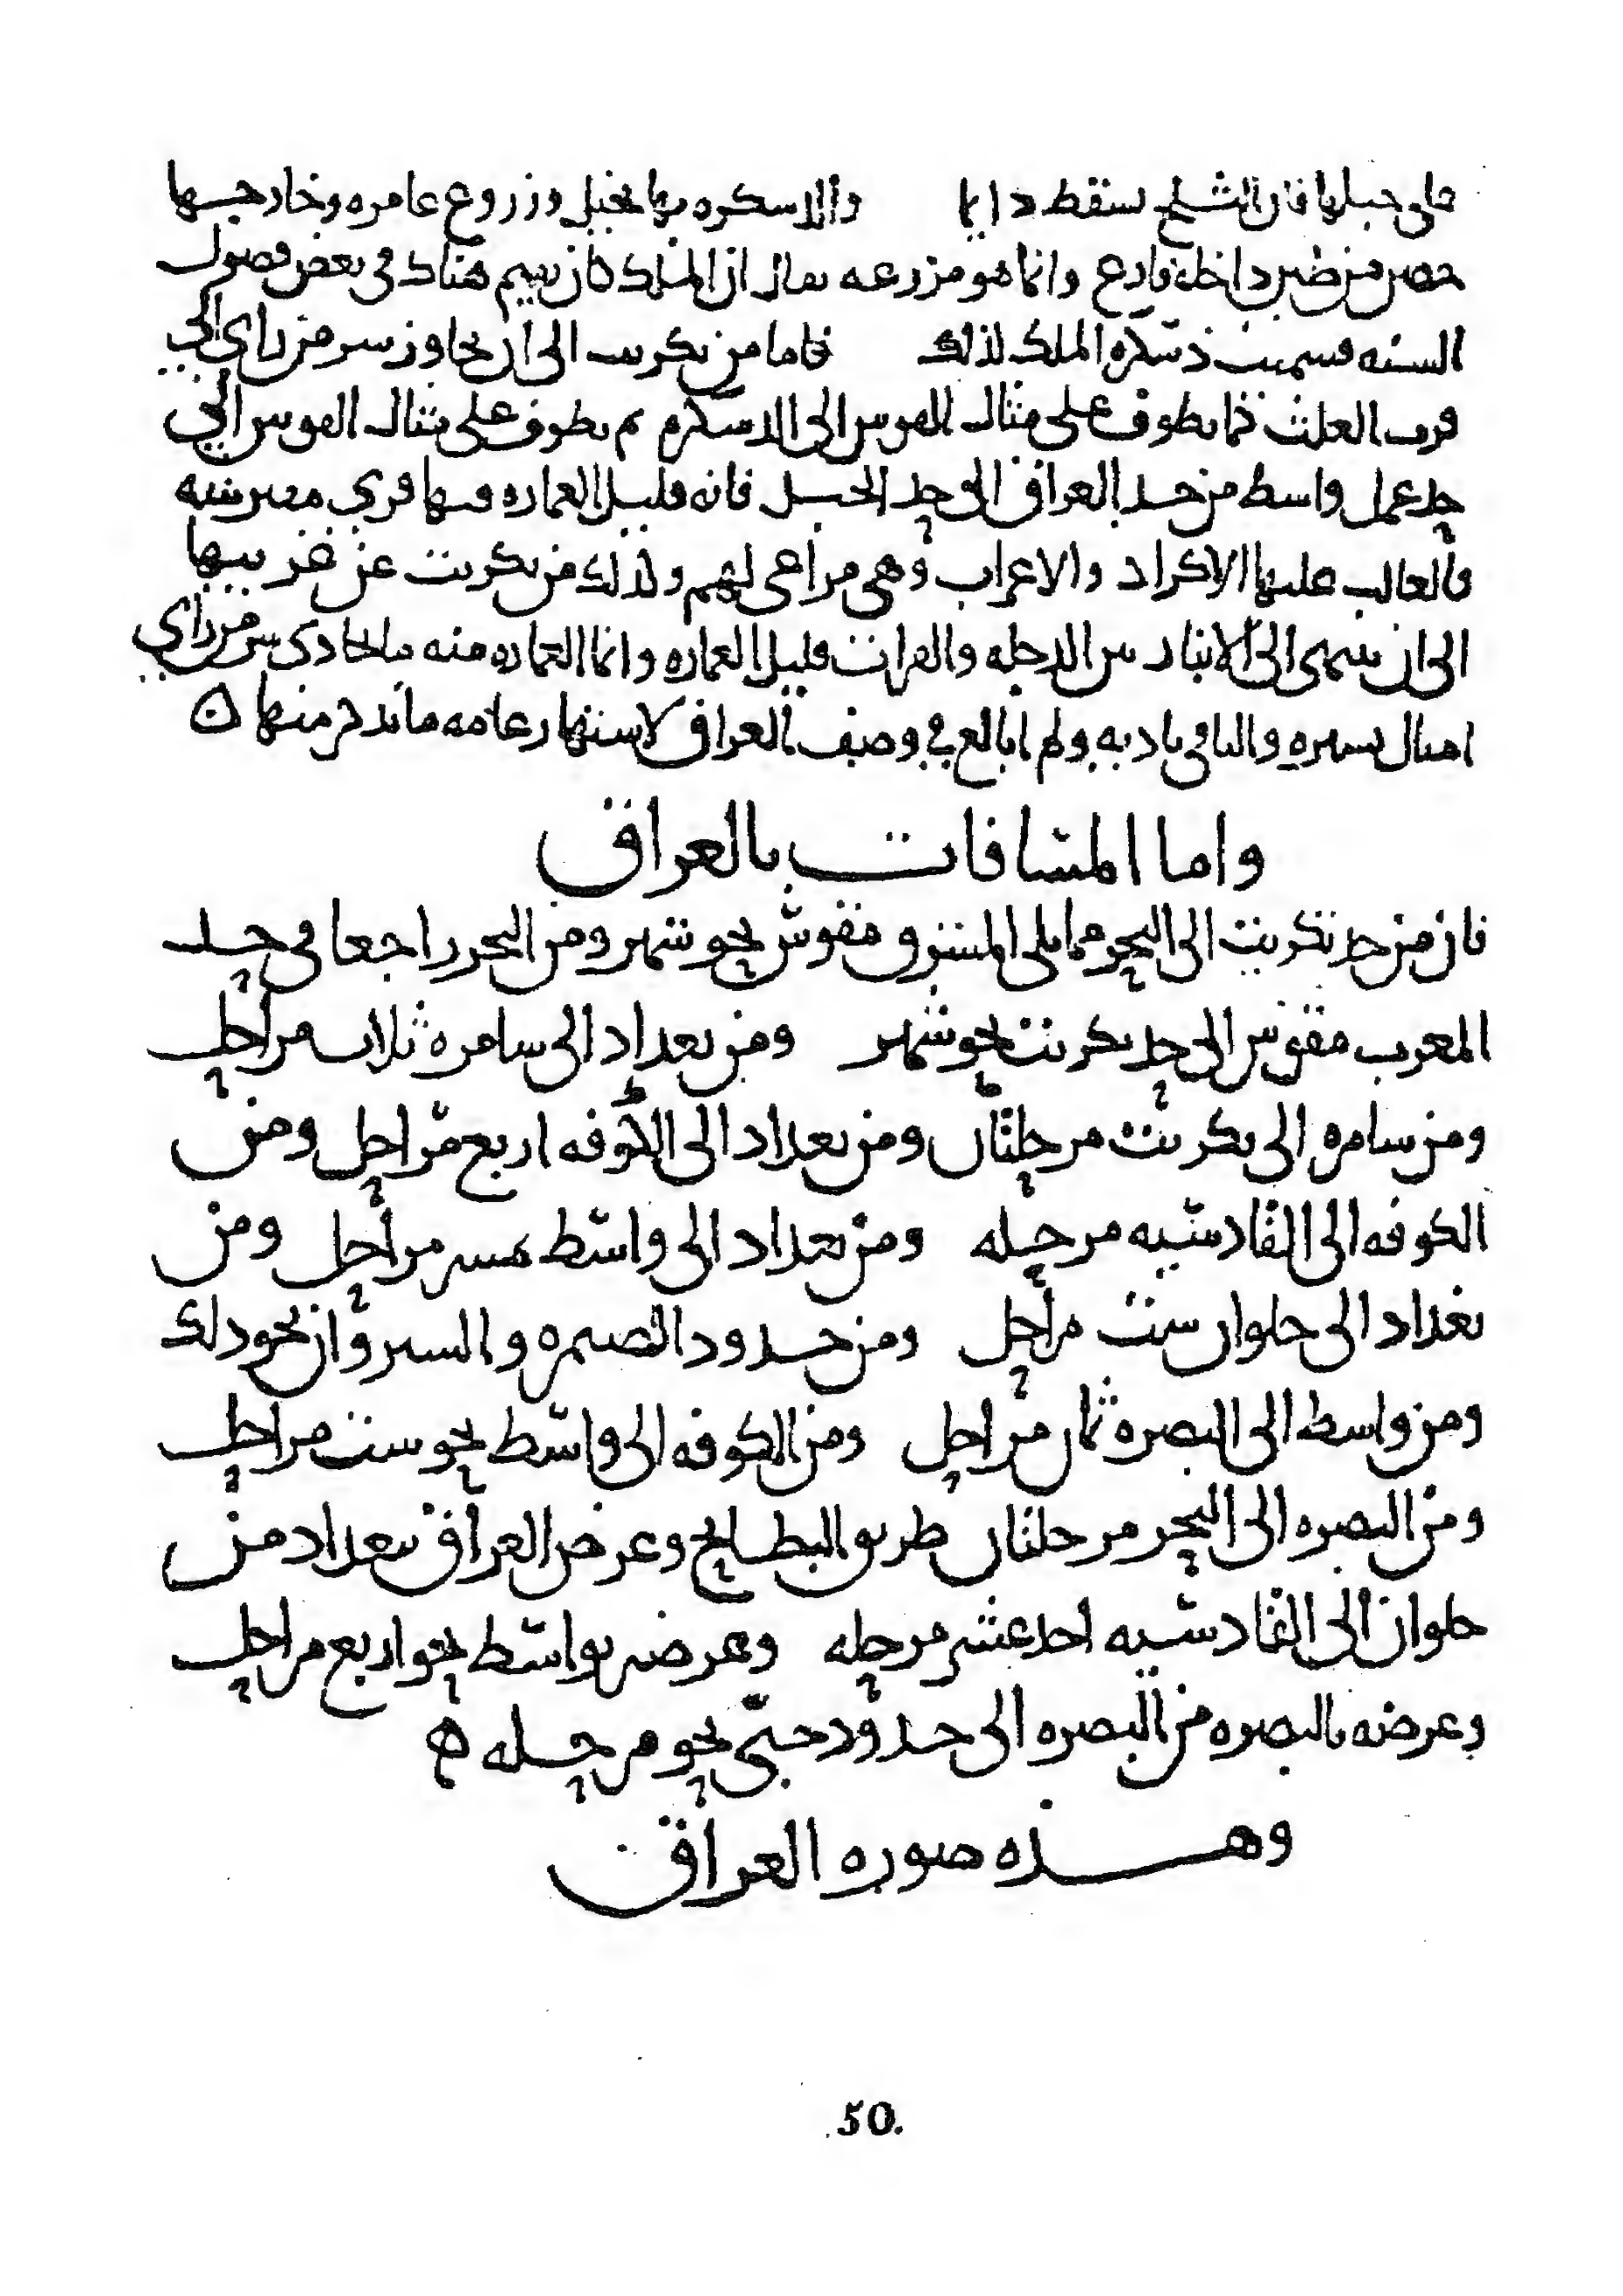 على جبلها فان الثلج يسقط دايما والاسكره بها نخيل وزروع عامره وخارجها
حصن من طين داخله فارع وانما هو مزرعه يقال ان الملك كان يقيم هناك في بعض فصول
السنه فسميت دسكره الملك لذلك فاما من تكريت الى ان تجاوز سر من راى الى
قرب العلث فما يطوف على مثال القوس الى الاسكره ثم يطوف على مثال القوس الى
حد عمل واسط من حد العراق الى حد الجبل فانه قليل العماره وفيها قرى مفترشه
والغالب عليها الاكراد والاعراب وهي مراعى لهم ولذلك من تكريت عن غربيها
الى ان ينتهى الى الانبار بين الدجله والفرات قليل العماره وانما العماره منه ما يحادى سر من راى
اميال يسيره والباقى باديه ولم ابالع في وصف العراق لاشتهار عامه ما يذكر منها ه
واما المسافات بالعراق
فان من حد تكريت الى البحر مما يلى المشرق مقوس نحو شهر ومن البحر راجعا في حد
المغرب مقوس الى حد تكريت نحو شهر ومن بغداد الى سامره ثلاث مراحل
ومن سامره الى تكريت مرحلتان ومن بغداد الى الكوفه اربع مراحل ومن
الكوفه الى القادسيه مرحله ومن بغداد الى واسط مراحل ومن
بغداد الى حلوان ست مراحل ومن حدود الصيمره والسيروان نحو ذلك
ومن واسط الى البصره ثمان مراحل ومن الكوفه الى واسط نحو ست مراحل
ومن البصره الى البحر مرحلتان طريق البطايح وعرض العراق ببغداد من
حلوان الى القادسيه احد عشر مرحله وعرضه بواسط نحو اربع مراحل
وعرضه بالبصره من البصره الى حدود جبى نحو مرحله ه
وهذه صوره العراق
50.